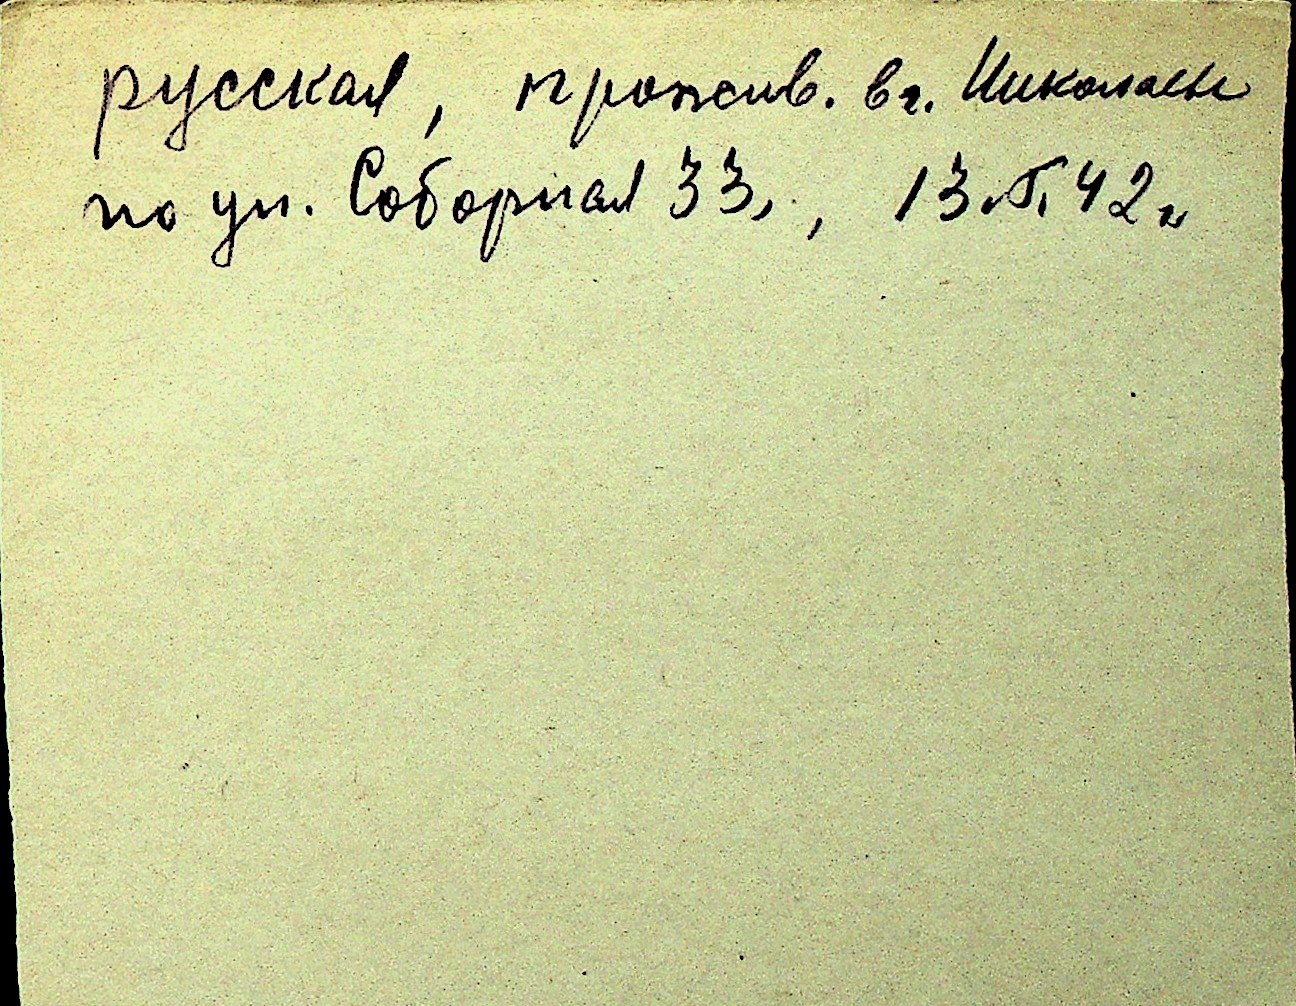 русская, прожив. в г. Николаеве
по ул. Соборная 33, , 13.II.42 г.